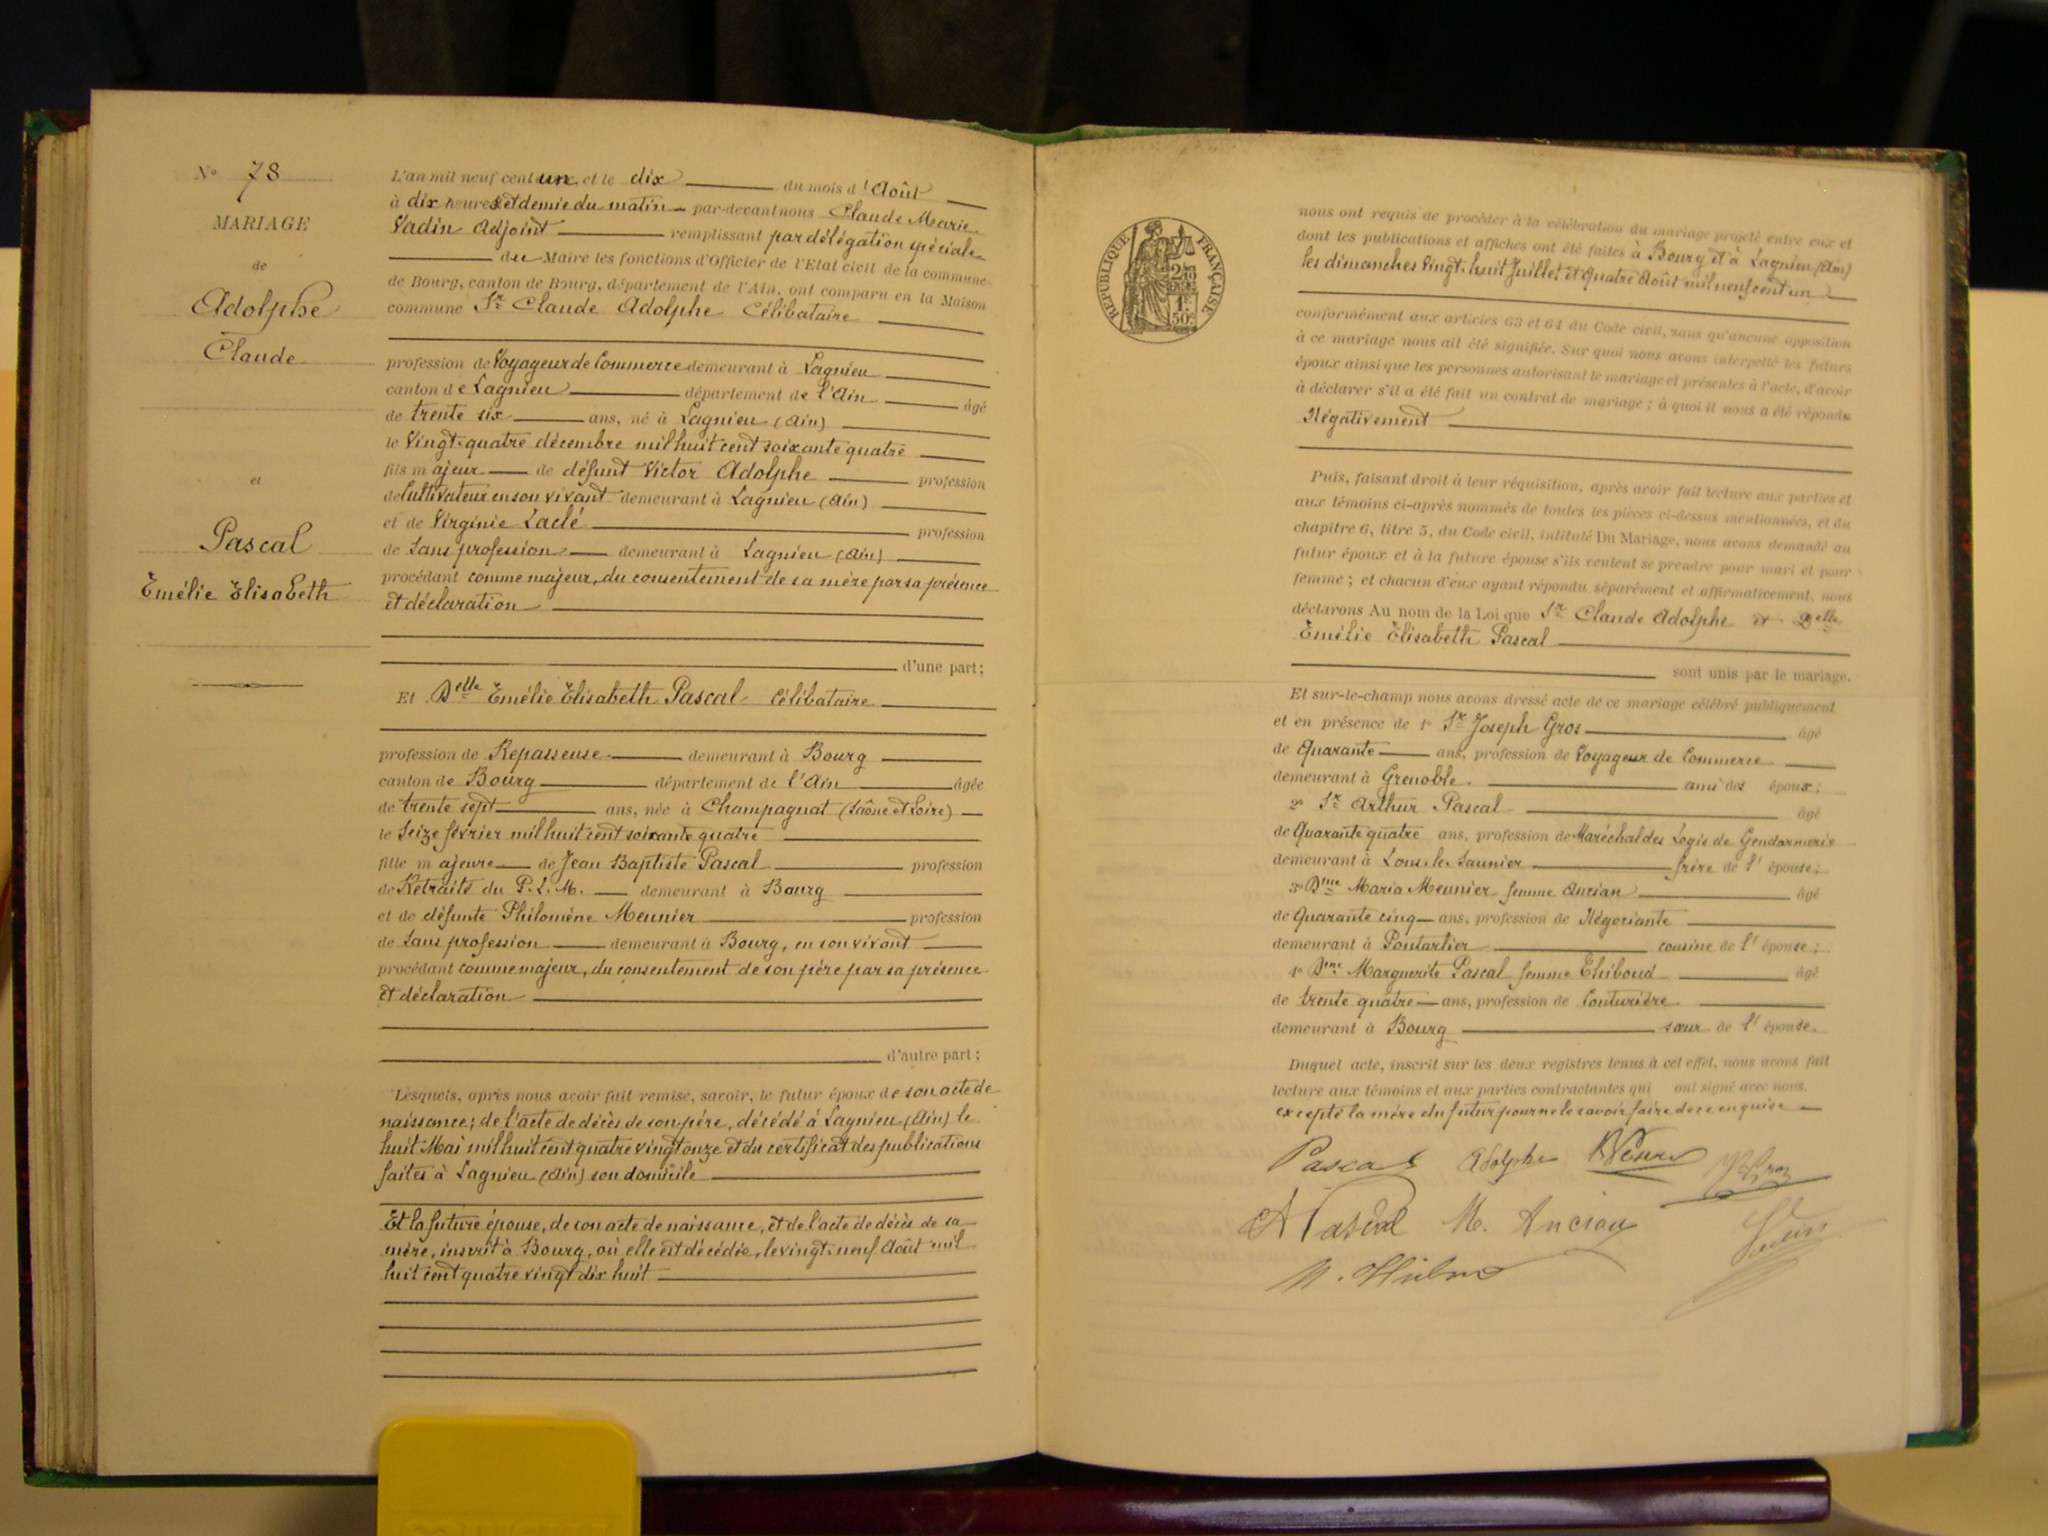 N° 78
MARIAGE
de
Adolphe
Claude
et
Pascal
Emélie Elisabeth
L'an mil neuf cent un et le dix du mois d'Août
à dix heures et demie du matin par-devant nous Claude Marie
Vadin Adjoint remplissant par délégation spéciale
du Maire les fonctions d'Officier de l'Etat civil de la commune
de Bourg, canton de Bourg, département de l'Ain, ont comparu en la Maison
commune Sr Claude Adolphe Célibataire
profession de Voyageur de Commerce demeurant à Lagnieu
canton de Lagnieu département de l'Ain âgé
de trente six ans, né à Lagnieu (Ain)
le Vingt-quatre décembre mil huit cent soixante quatre
fils majeur de défunt Victor Adolphe profession
de Cultivateur en son vivant demeurant à Lagnieu (Ain)
et de Virginie Laclé profession
de Sans profession demeurant à Lagnieu (Ain)
procédant comme majeur, du consentement de sa mère par sa présence
et déclaration
d'une part;
Et Delle Emélie Elisabeth Pascal Célibataire
profession de Repasseuse demeurant à Bourg
canton de Bourg département de l'Ain âgée
de trente sept ans, née à Champagnat (Saône et Loire)
le Seize février mil huit cent soixante quatre
fille majeure de Jean Baptiste Pascal profession
de Retraité du P. L. M. demeurant à Bourg
et de défunte Philomène Meunier profession
de Sans profession demeurant à Bourg, en son vivant
procédant comme majeur, du consentement de son père par sa présence
et déclaration
d'autre part;
Lesquels, après nous avoir fait remise, savoir, le futur époux de son acte de
naissance; de l'acte de décès de son père, décédé à Lagnieu (Ain) le
huit Mai mil huit cent quatre vingt onze et du certificat des publications
faites à Lagnieu (Ain) son domicile
Et la future épouse, de son acte de naissance, et de l'acte de décès de sa
mère, inscrit à Bourg, où elle est décédée, le vingt-neuf Août mil
huit cent quatre vingt dix huit
RÉPUBLIQUE FRANÇAISE
1F 50c
nous ont requis de procéder à la célébration du mariage projeté entre eux et
dont les publications et affiches ont été faites à Bourg et à Lagnieu (Ain)
les dimanches Vingt-huit Juillet et Quatre Août mil neuf cent un
conformément aux articles 63 et 64 du Code civil, sans qu'aucune opposition
à ce mariage nous ait été signifiée. Sur quoi nous avons interpellé les futurs
époux ainsi que les personnes autorisant le mariage et présentes à l'acte, d'avoir
à déclarer s'il a été fait un contrat de mariage; à quoi il nous a été répondu
Négativement
Puis, faisant droit à leur réquisition, après avoir fait lecture aux parties et
aux témoins ci-après nommés de toutes les pièces ci-dessus mentionnées, et du
chapitre 6, titre 5, du Code civil, intitulé Du Mariage, nous avons demandé au
futur époux et à la future épouse s'ils veulent se prendre pour mari et pour
femme; et chacun d'eux ayant répondu séparément et affirmativement, nous
déclarons Au nom de la Loi que Sr Claude Adolphe et Delle
Emélie Elisabeth Pascal
sont unis par le mariage.
Et sur-le-champ nous avons dressé acte de ce mariage célébré publiquement
et en présence de 1° Sr Joseph Gros âgé
de Quarante ans, profession de Voyageur de Commerce
demeurant à Grenoble. ami des époux;
2° Sr Arthur Pascal âgé
de Quarante quatre ans, profession de Maréchal des Logis de Gendarmerie
demeurant à Lons-le-Saunier frère de l'épouse;
3° Dme Maria Meunier femme Ancian âgé
de Quarante cinq ans, profession de Négociante
demeurant à Pontarlier cousine de l'épouse;
4° Dme Marguerite Pascal femme Thiboud âgé
de trente quatre ans, profession de Couturière
demeurant à Bourg sœur de l'épouse.
Duquel acte, inscrit sur les deux registres tenus à cet effet, nous avons fait
lecture aux témoins et aux parties contractantes qui ont signé avec nous,
excepté la mère du futur pour ne le savoir faire de ce enquise
Pascal Adolphe
A Pascal M. Ancian